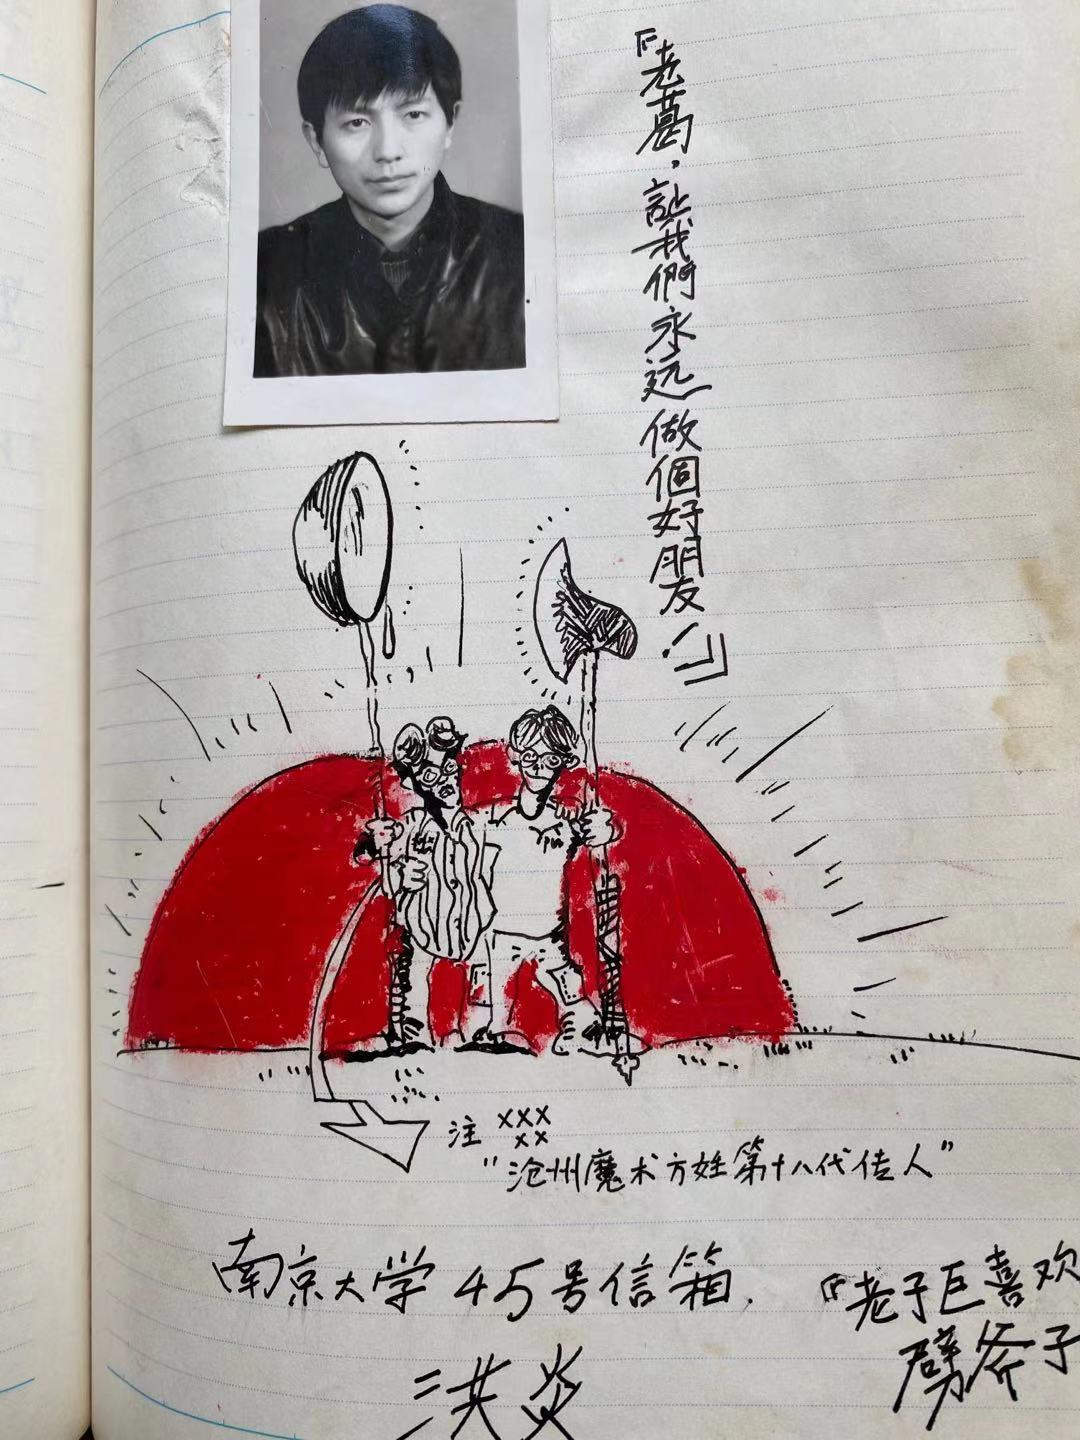 『老葛，让我們永远做個好朋友！』
注 XXX
XX
“沧州魔术方姓第十八代传人”
南京大学45号信箱.
『老子巨喜欢
劈斧子
洪炎